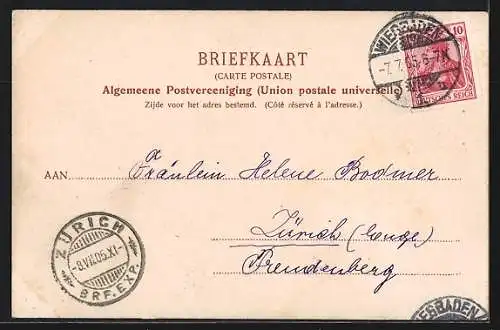 BRIEFKAART
(CARTE POSTALE)
Algemeene Postvereeniging (Union postale universelle)
Zijde voor het adres bestemd. (Côté réservé à l'adresse.)
WIESBADEN
-7.7.05.6-7N.
10
DEUTSCHES REICH
AAN
Fräulein Helene Bodmer
Zürich (Enge)
Freudenberg
ZÜRICH
-8.VII.05.XI-
BRF.EXP.
WIESBADEN